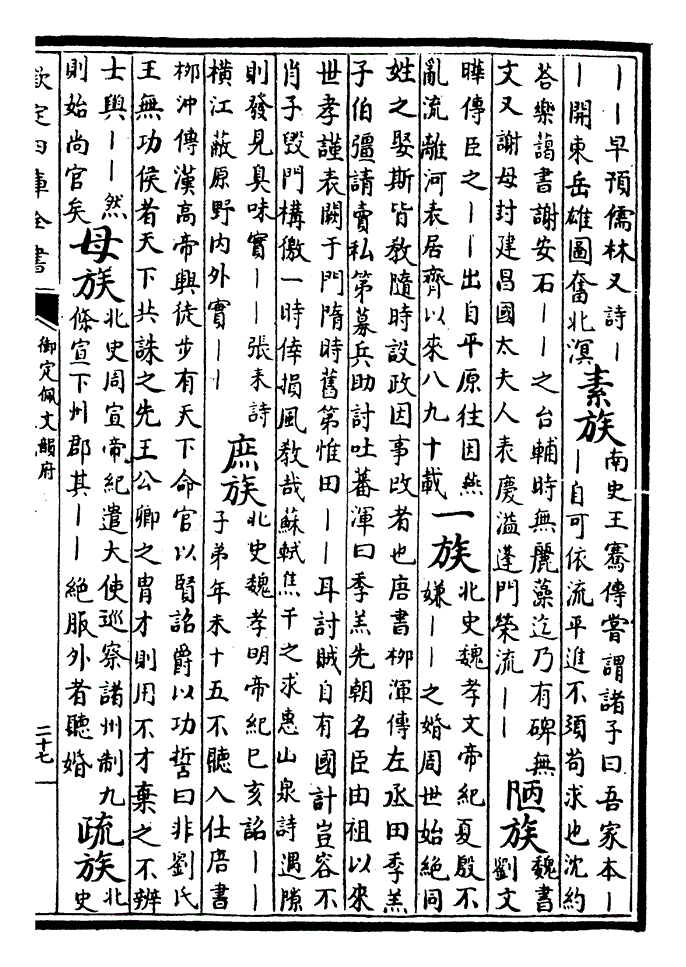 ——早預儒林又詩—
—開東岳雄圖奮北溟
素族
南史王騫傳嘗謂諸子曰吾家本—
—自可依流平進不須苟求也沈約
荅樂藹書謝安石——之台輔時無麗藻迄乃有碑無
文又謝母封建昌國太夫人表慶溢蓬門榮流——
陋族
魏書
劉文
曄傳臣之——出自平原往因燕
亂流離河表居齊以來八九十載
一族
北史魏孝文帝紀夏殷不
嫌——之婚周世始絕同
姓之娶斯皆敎隨時設政因事改者也唐書柳渾傳左丞田季羔
子伯彊請賣私第募兵助討吐蕃渾曰季羔先朝名臣由祖以來
世孝謹表闕于門隋時舊第惟田——耳討賊自有國計豈容不
肖子毀門構儌一時倖損風敎哉蘇軾焦千之求惠山泉詩遇隙
則發見臭味實——張耒詩
橫江蔽原野内外實——
庶族
北史魏孝明帝紀已亥詔——
子弟年未十五不聽入仕唐書
柳沖傳漢高帝興徒步有天下命官以賢詔爵以功誓曰非劉氏
王無功侯者天下共誅之先王公卿之胄才則用不才棄之不辨
士與——然
則始尚官矣
母族
北史周宣帝紀遣大使巡察諸州制九
條宣下州郡其——絕服外者聽婚
疏族
北
史
欽定四庫全書
御定佩文韻府
二十七